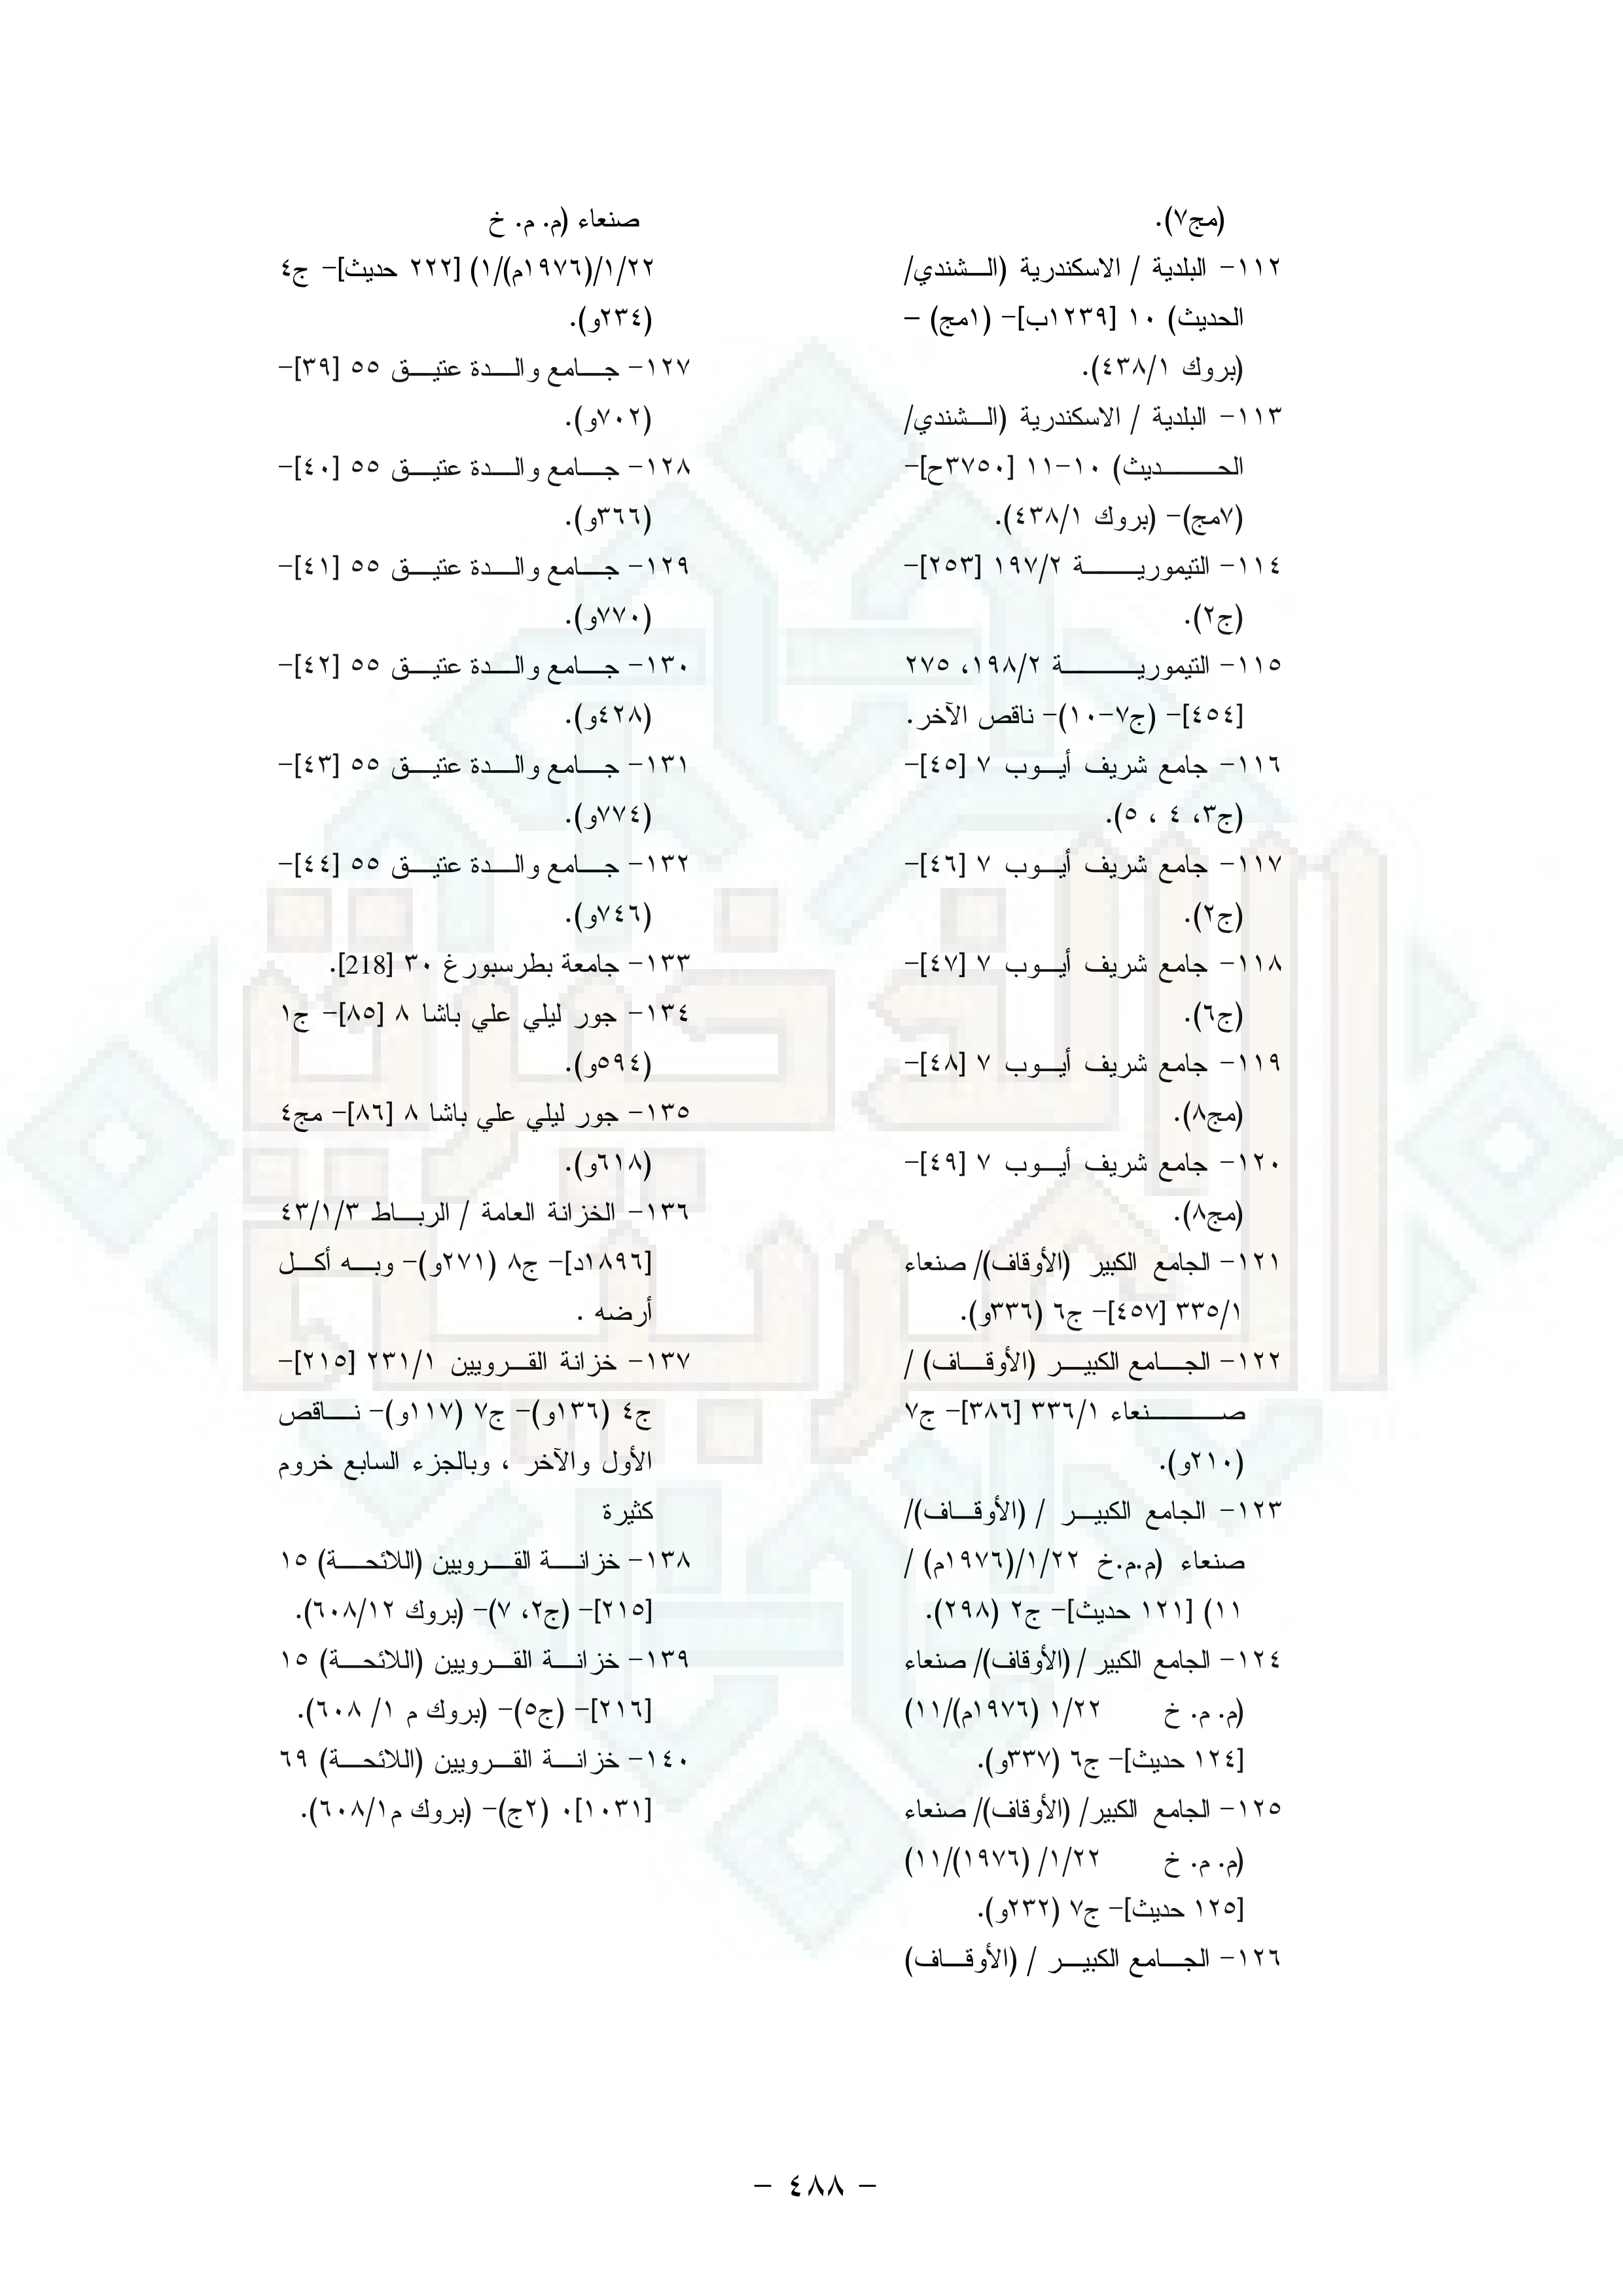 (مج٧).
١١٢- البلدية / الاسكندرية (الشندي/
الحديث) ١٠ [١٢٣٩ب]- (١مج) -
(بروك ٤٣٨/١).
١١٣- البلدية / الاسكندرية (الشندي/
الحديث) ١٠-١١ [٣٧٥٠ح]-
(٧مج)- (بروك ٤٣٨/١).
١١٤- التيمورية ١٩٧/٢ [٢٥٣]-
(ج٢).
١١٥- التيمورية ١٩٨/٢، ٢٧٥
[٤٥٤]- (ج٧-١٠)- ناقص الآخر.
١١٦- جامع شريف أيوب ٧ [٤٥]-
(ج٣، ٤ ، ٥).
١١٧- جامع شريف أيوب ٧ [٤٦]-
(ج٢).
١١٨- جامع شريف أيوب ٧ [٤٧]-
(ج٦).
١١٩- جامع شريف أيوب ٧ [٤٨]-
(مج٨).
١٢٠- جامع شريف أيوب ٧ [٤٩]-
(مج٨).
١٢١- الجامع الكبير (الأوقاف)/ صنعاء
٣٣٥/١ [٤٥٧]- ج٦ (٣٣٦و).
١٢٢- الجامع الكبير (الأوقاف) /
صنعاء ٣٣٦/١ [٣٨٦]- ج٧
(٢١٠و).
١٢٣- الجامع الكبير / (الأوقاف)/
صنعاء (م.م.خ ١/٢٢/(١٩٧٦م) /
١١) [١٢١ حديث]- ج٢ (٢٩٨).
١٢٤- الجامع الكبير / (الأوقاف)/ صنعاء
(م. م. خ ١/٢٢ (١٩٧٦م)/١١)
[١٢٤ حديث]- ج٦ (٣٣٧و).
١٢٥- الجامع الكبير/ (الأوقاف)/ صنعاء
(م. م. خ ١/٢٢/ (١٩٧٦)/١١)
[١٢٥ حديث]- ج٧ (٢٣٢و).
١٢٦- الجامع الكبير / (الأوقاف)
صنعاء (م. م. خ
١/٢٢/(١٩٧٦م)/١) [٢٢٢ حديث]- ج٤
(٢٣٤و).
١٢٧- جامع والدة عتيق ٥٥ [٣٩]-
(٧٠٢و).
١٢٨- جامع والدة عتيق ٥٥ [٤٠]-
(٣٦٦و).
١٢٩- جامع والدة عتيق ٥٥ [٤١]-
(٧٧٠و).
١٣٠- جامع والدة عتيق ٥٥ [٤٢]-
(٤٢٨و).
١٣١- جامع والدة عتيق ٥٥ [٤٣]-
(٧٧٤و).
١٣٢- جامع والدة عتيق ٥٥ [٤٤]-
(٧٤٦و).
١٣٣- جامعة بطرسبورغ ٣٠ [218].
١٣٤- جور ليلي علي باشا ٨ [٨٥]- ج١
(٥٩٤و).
١٣٥- جور ليلي علي باشا ٨ [٨٦]- مج٤
(٦١٨و).
١٣٦- الخزانة العامة / الرباط ٤٣/١/٣
[١٨٩٦د]- ج٨ (٢٧١و)- وبه أكل
أرضه .
١٣٧- خزانة القرويين ٢٣١/١ [٢١٥]-
ج٤ (١٣٦و)- ج٧ (١١٧و)- ناقص
الأول والآخر ، وبالجزء السابع خروم
كثيرة
١٣٨- خزانة القرويين (اللائحة) ١٥
[٢١٥]- (ج٢، ٧)- (بروك ٦٠٨/١٢).
١٣٩- خزانة القرويين (اللائحة) ١٥
[٢١٦]- (ج٥)- (بروك م ١/ ٦٠٨).
١٤٠- خزانة القرويين (اللائحة) ٦٩
[١٠٣١]٠ (٢ج)- (بروك م٦٠٨/١).
الذخيرة
العربية
- ٤٨٨ -